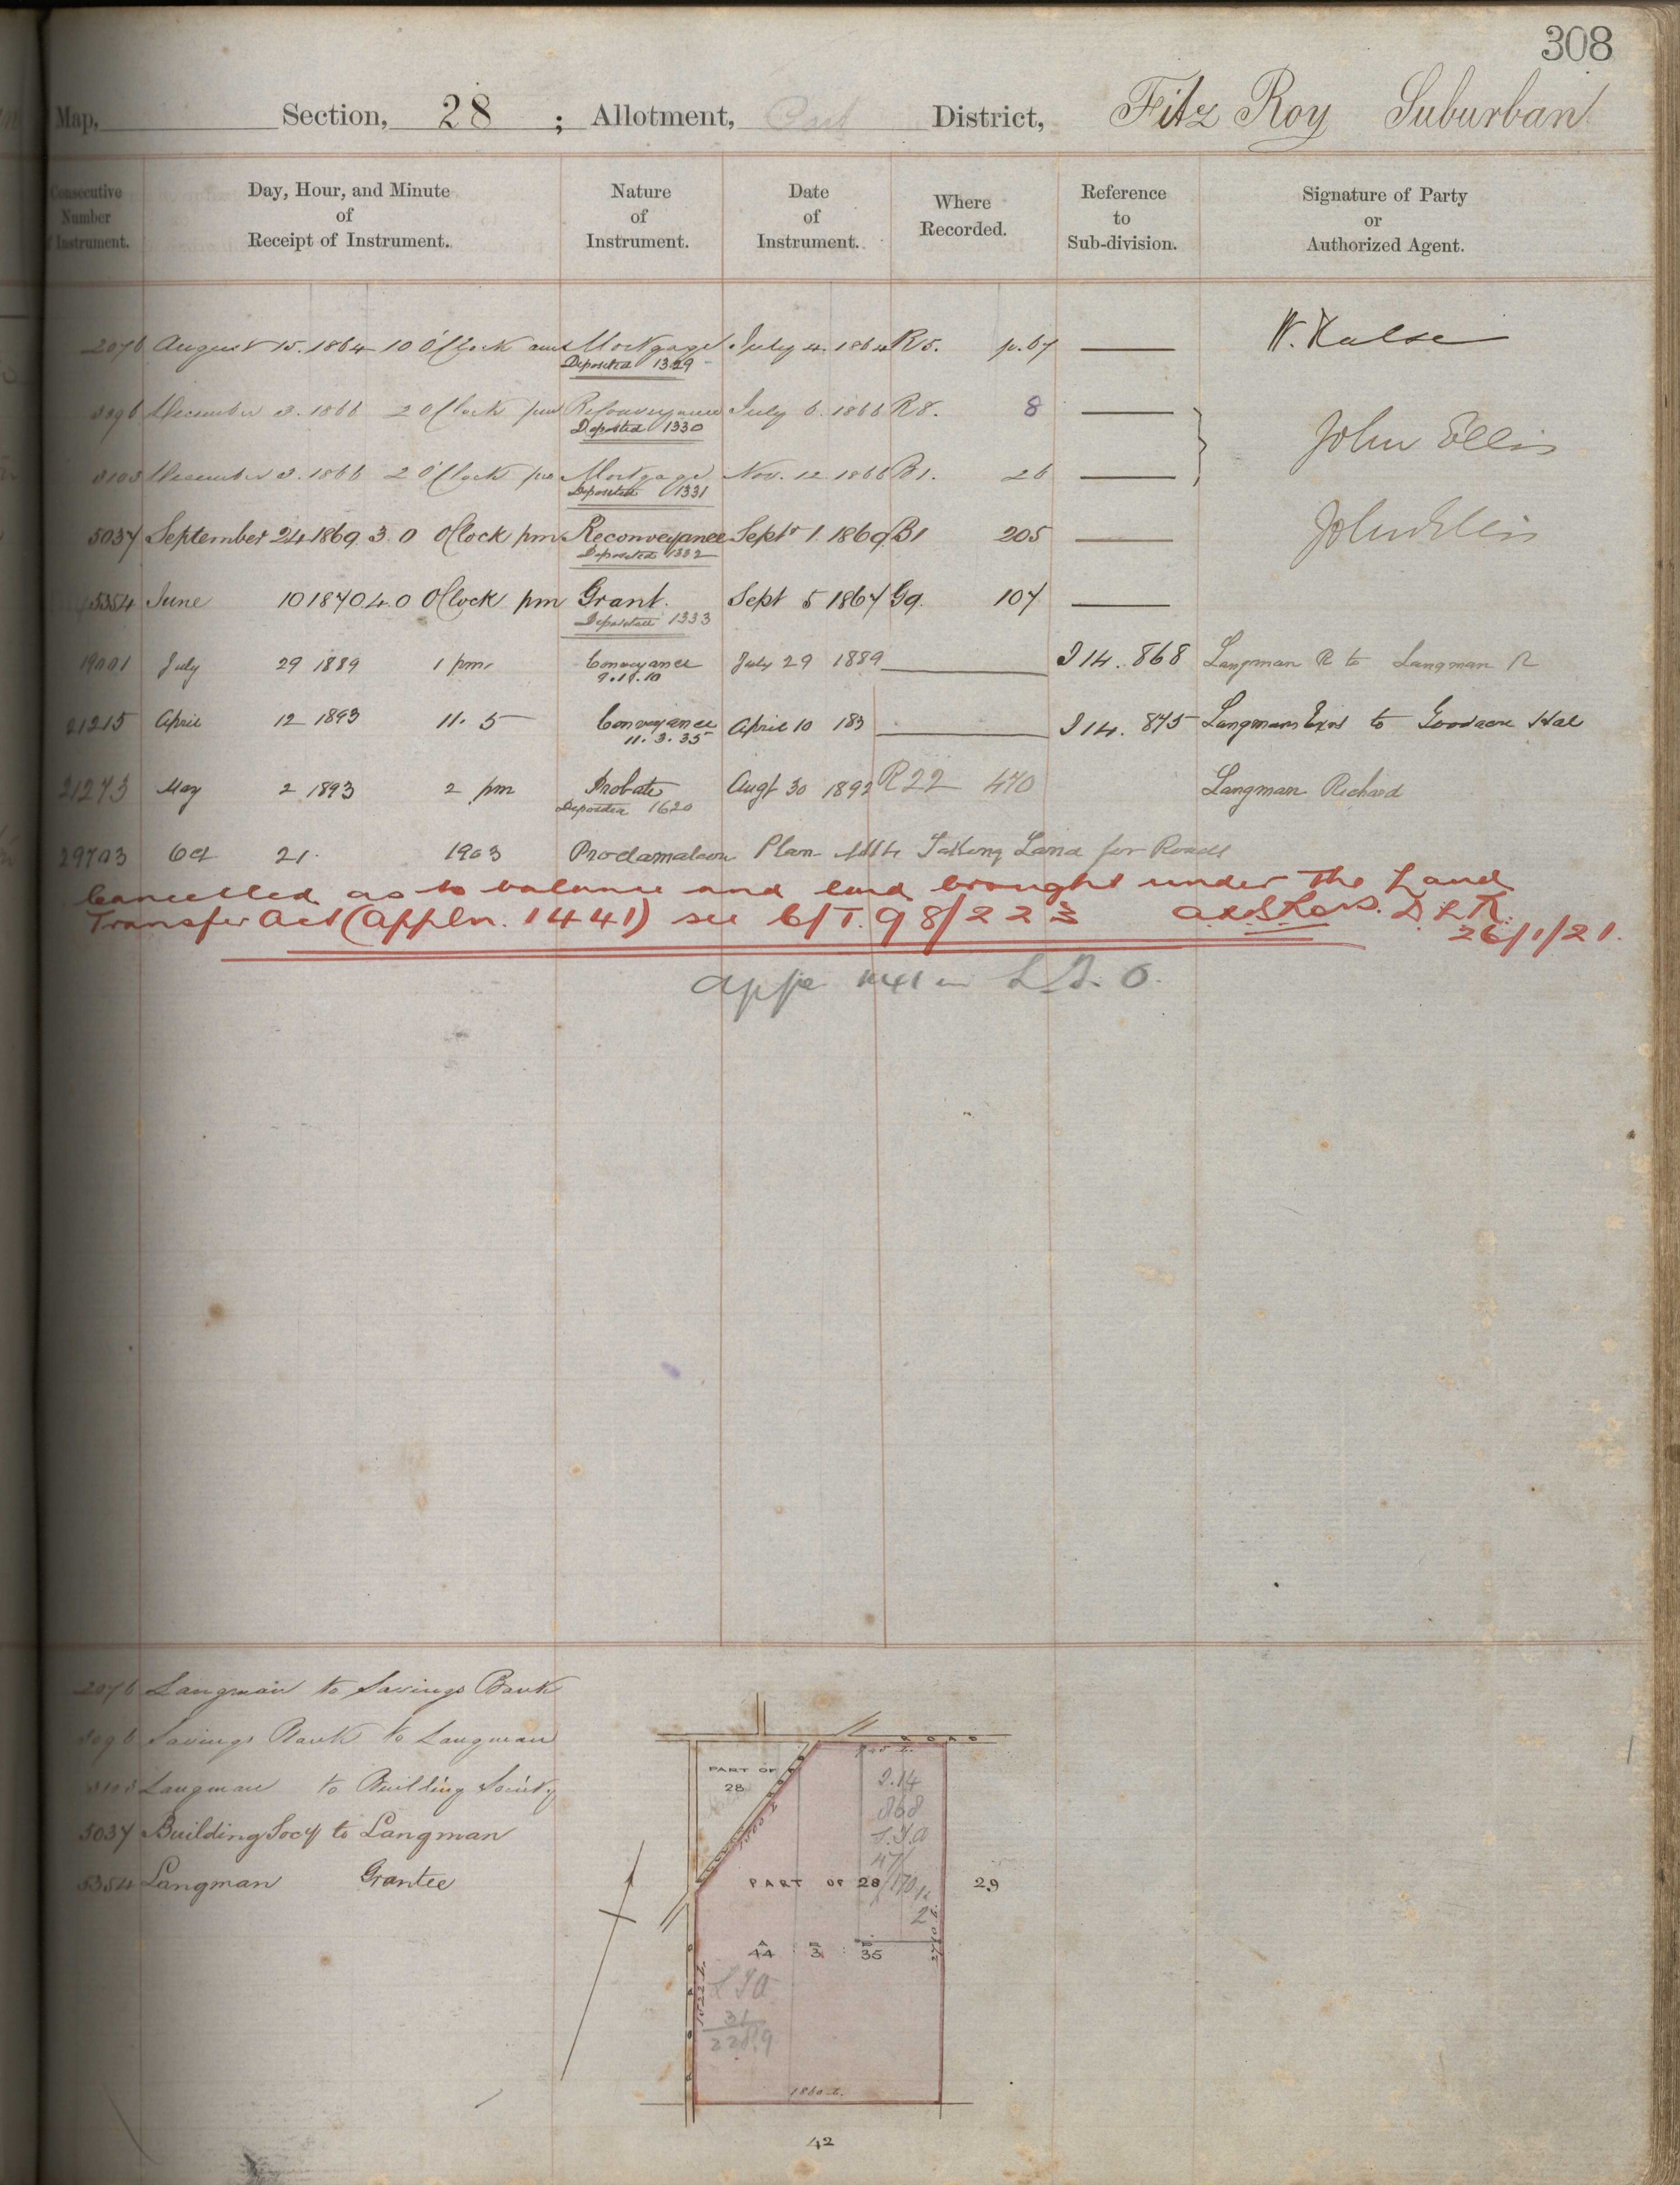 308
Map, Section, 28 ; Allotment, Part District, Fitz Roy Suburban
Consecutive Number of Instrument.
Day, Hour, and Minute of Receipt of Instrument.
Nature of Instrument.
Date of Instrument.
Where Recorded.
Reference to Sub-division.
Signature of Party or Authorized Agent.
2076 August 15. 1864 10 O'Clock am Mortgage July 4. 1864 R5. p. 67 W. Halse
Deposited 1329
3096 December 3. 1866 2 O'Clock pm Reconveyance July 6. 1866 R8. 8 John Ellis
Deposited 1330
3103 December 3. 1866 2 O'Clock pm Mortgage Nov. 12 1866 B1. 26
Deposited 1331
5037 September 24 1869 3.0 O'Clock pm Reconveyance Sept 1 1869 B1 205 John Ellis
Deposited 1332
5354 June 10 1870 4.0 O'Clock pm Grant. Sept 5 1867 G9. 107
Deposited 1333
19001 July 29 1889 1 pm. Conveyance July 29 1889 I 14. 868 Langman R to Langman R
9.19.10
21215 April 12 1893 11. 5 Conveyance April 10 183 I 14. 875 Langmans Exrs to Goodacre Hal
11. 3. 35
21273 May 2 1893 2 pm Probate Augt 30 1892 R22 470 Langman Richard
Deposited 1620
29703 Oct 21. 1903 Proclamation Plan Taking Land for Roads
Cancelled as to balance and land brought under the Land
Transfer Act (Appln. 1441) see C/T. 98/223 D.L.R.
26/1/21.
appn 1441 in L.T.O.
2076 Langman to Savings Bank
3096 Savings Bank to Langman
3103 Langman to Building Society
5037 Building Socy to Langman
5354 Langman Grantee
ROAD
PART OF
28
I.14
868
L.T.A
47/170
2
PART OF 28
29
A R P
44 : 3 : 35
LTA
ROAD
1860 L.
42